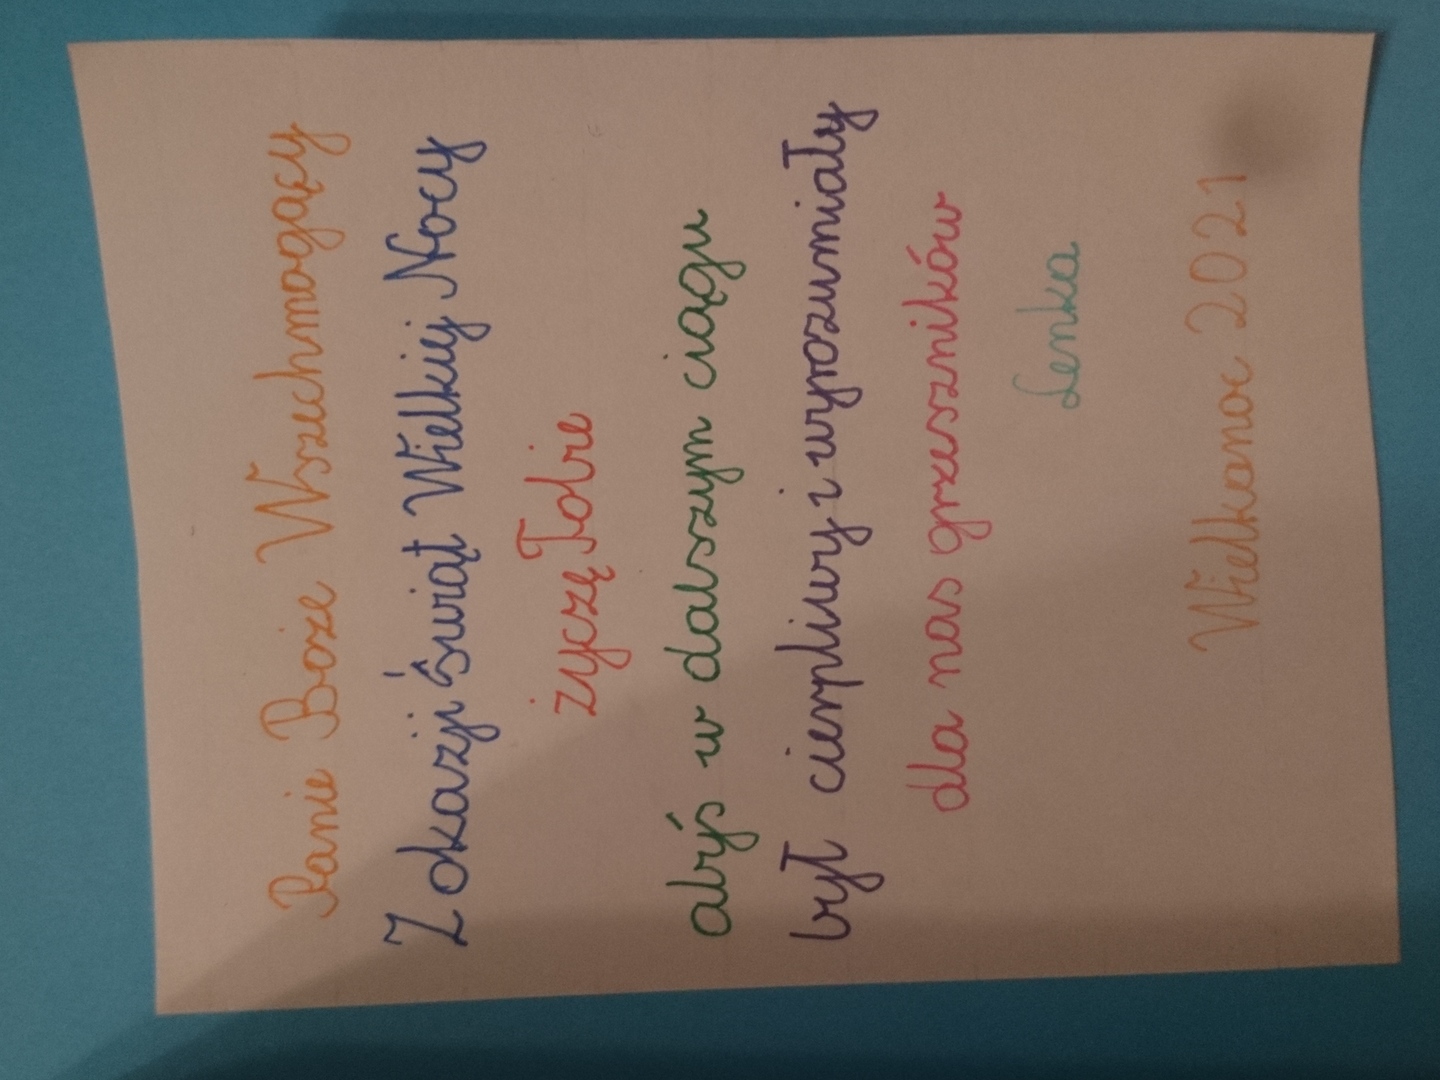 Panie Boże Wszechmogący
Z okazji Świąt Wielkiej Nocy
życzę Tobie
abyś w dalszym ciągu
był cierpliwy i wyrozumiały
dla nas grzeszników
Lenka
Wielkanoc 2021